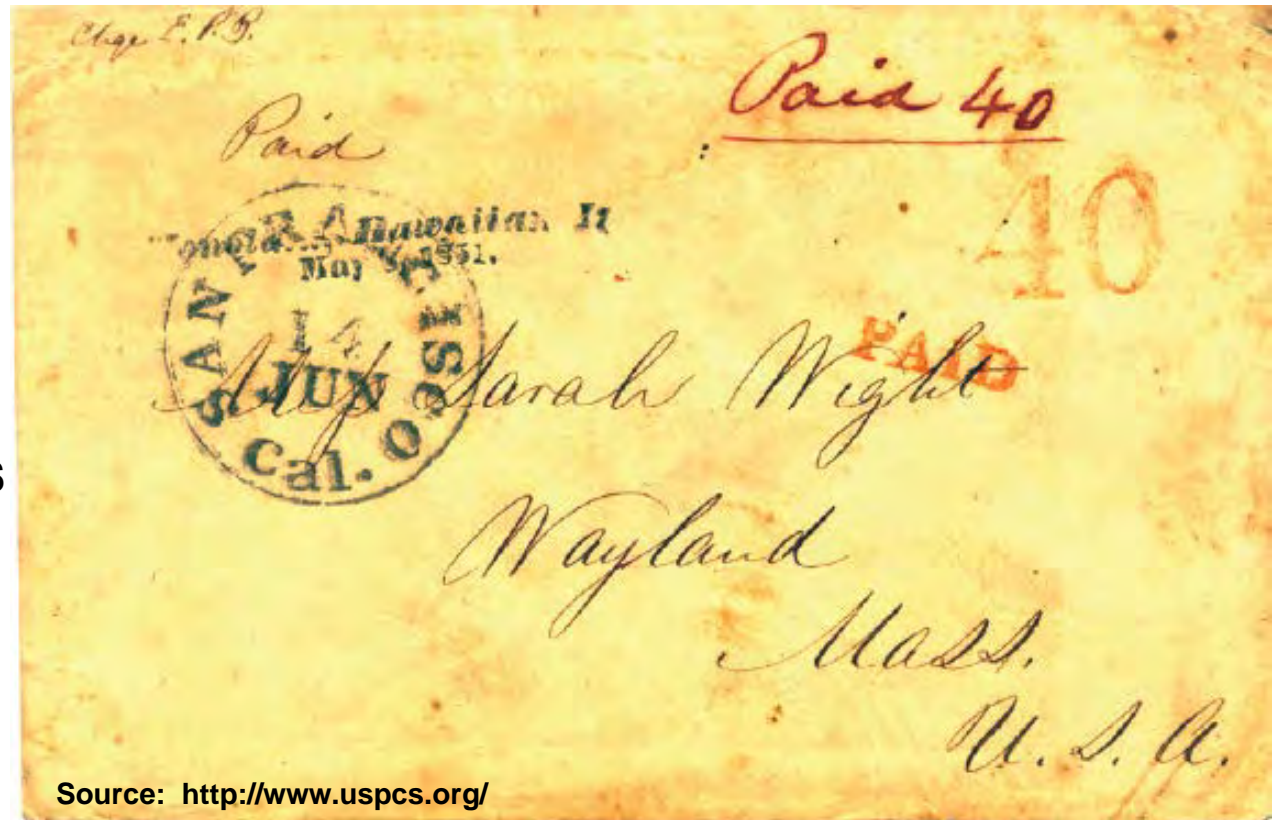 Chge E. P. B.
Paid 40
Paid
40
Hawaiian Is
1851.
SAN FRANCISCO
14
JUN
Cal.
PAID
Miss Sarah Wight
Wayland
Mass.
U. S. A.
s
Source: http://www.uspcs.org/